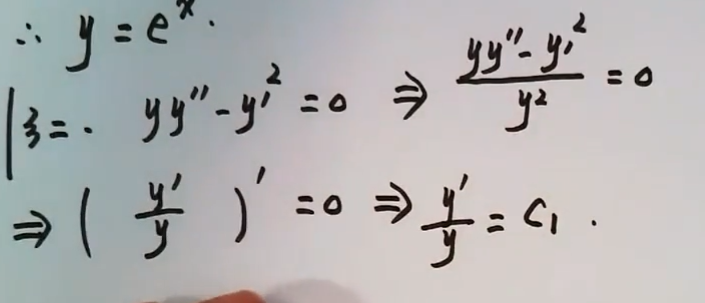 ∴ y = eˣ.
法二: yy'' - y'² = 0 ⇒ (yy'' - y'²)/y² = 0
⇒ (y'/y)' = 0 ⇒ y'/y = C₁.